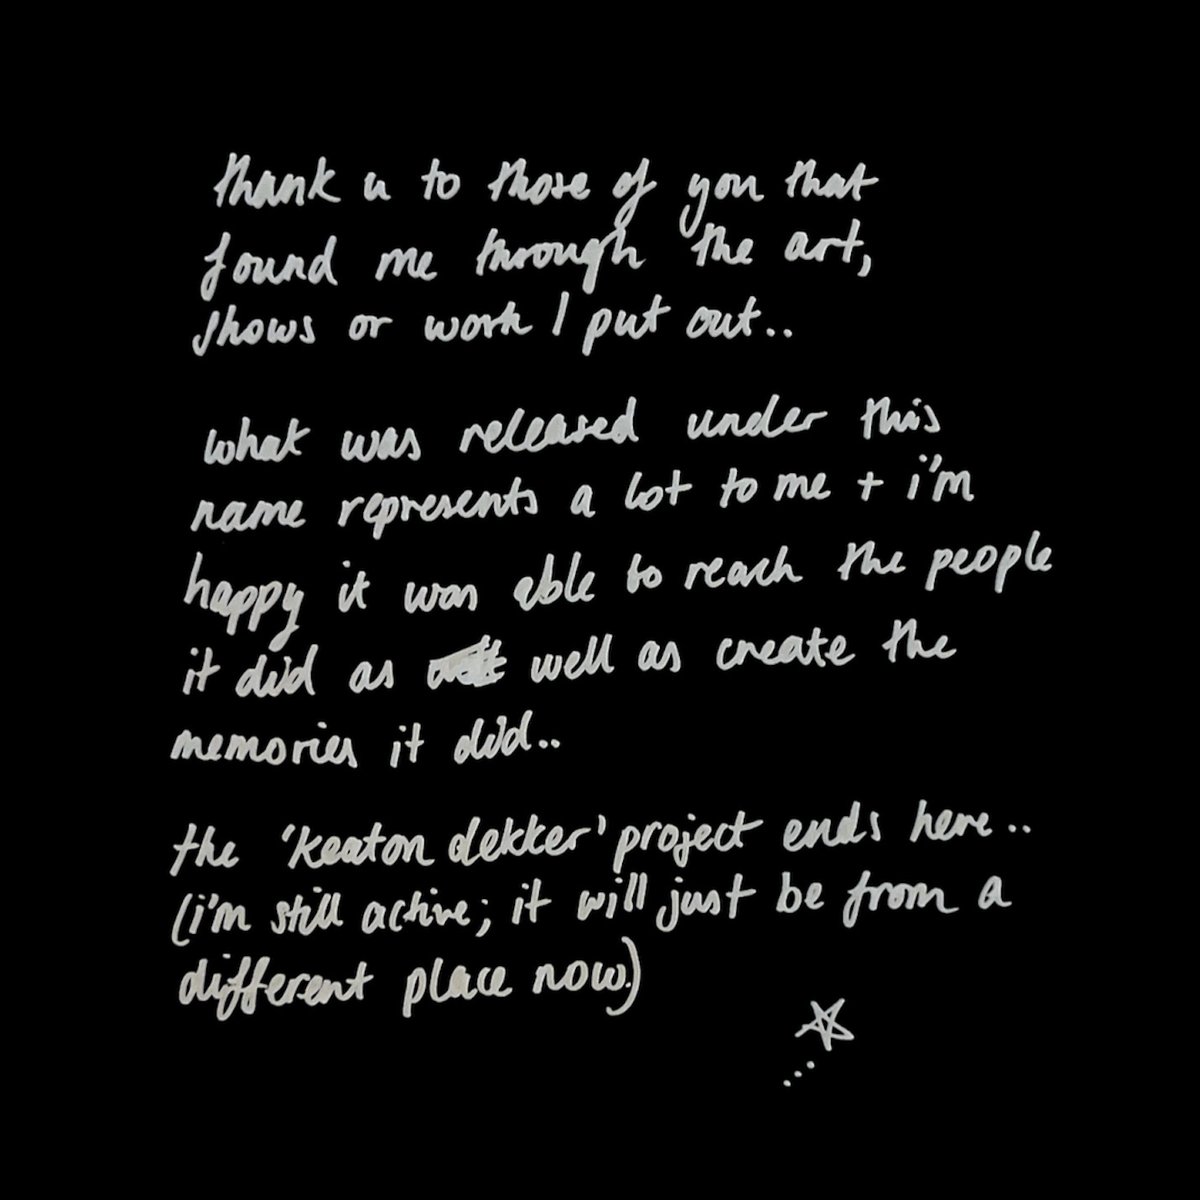 thank u to those of you that
found me through the art,
shows or work I put out..
what was released under this
name represents a lot to me + i'm
happy it was able to reach the people
it did as well as create the
memories it did..
the 'keaton dekker' project ends here..
(i'm still active; it will just be from a
different place now.)